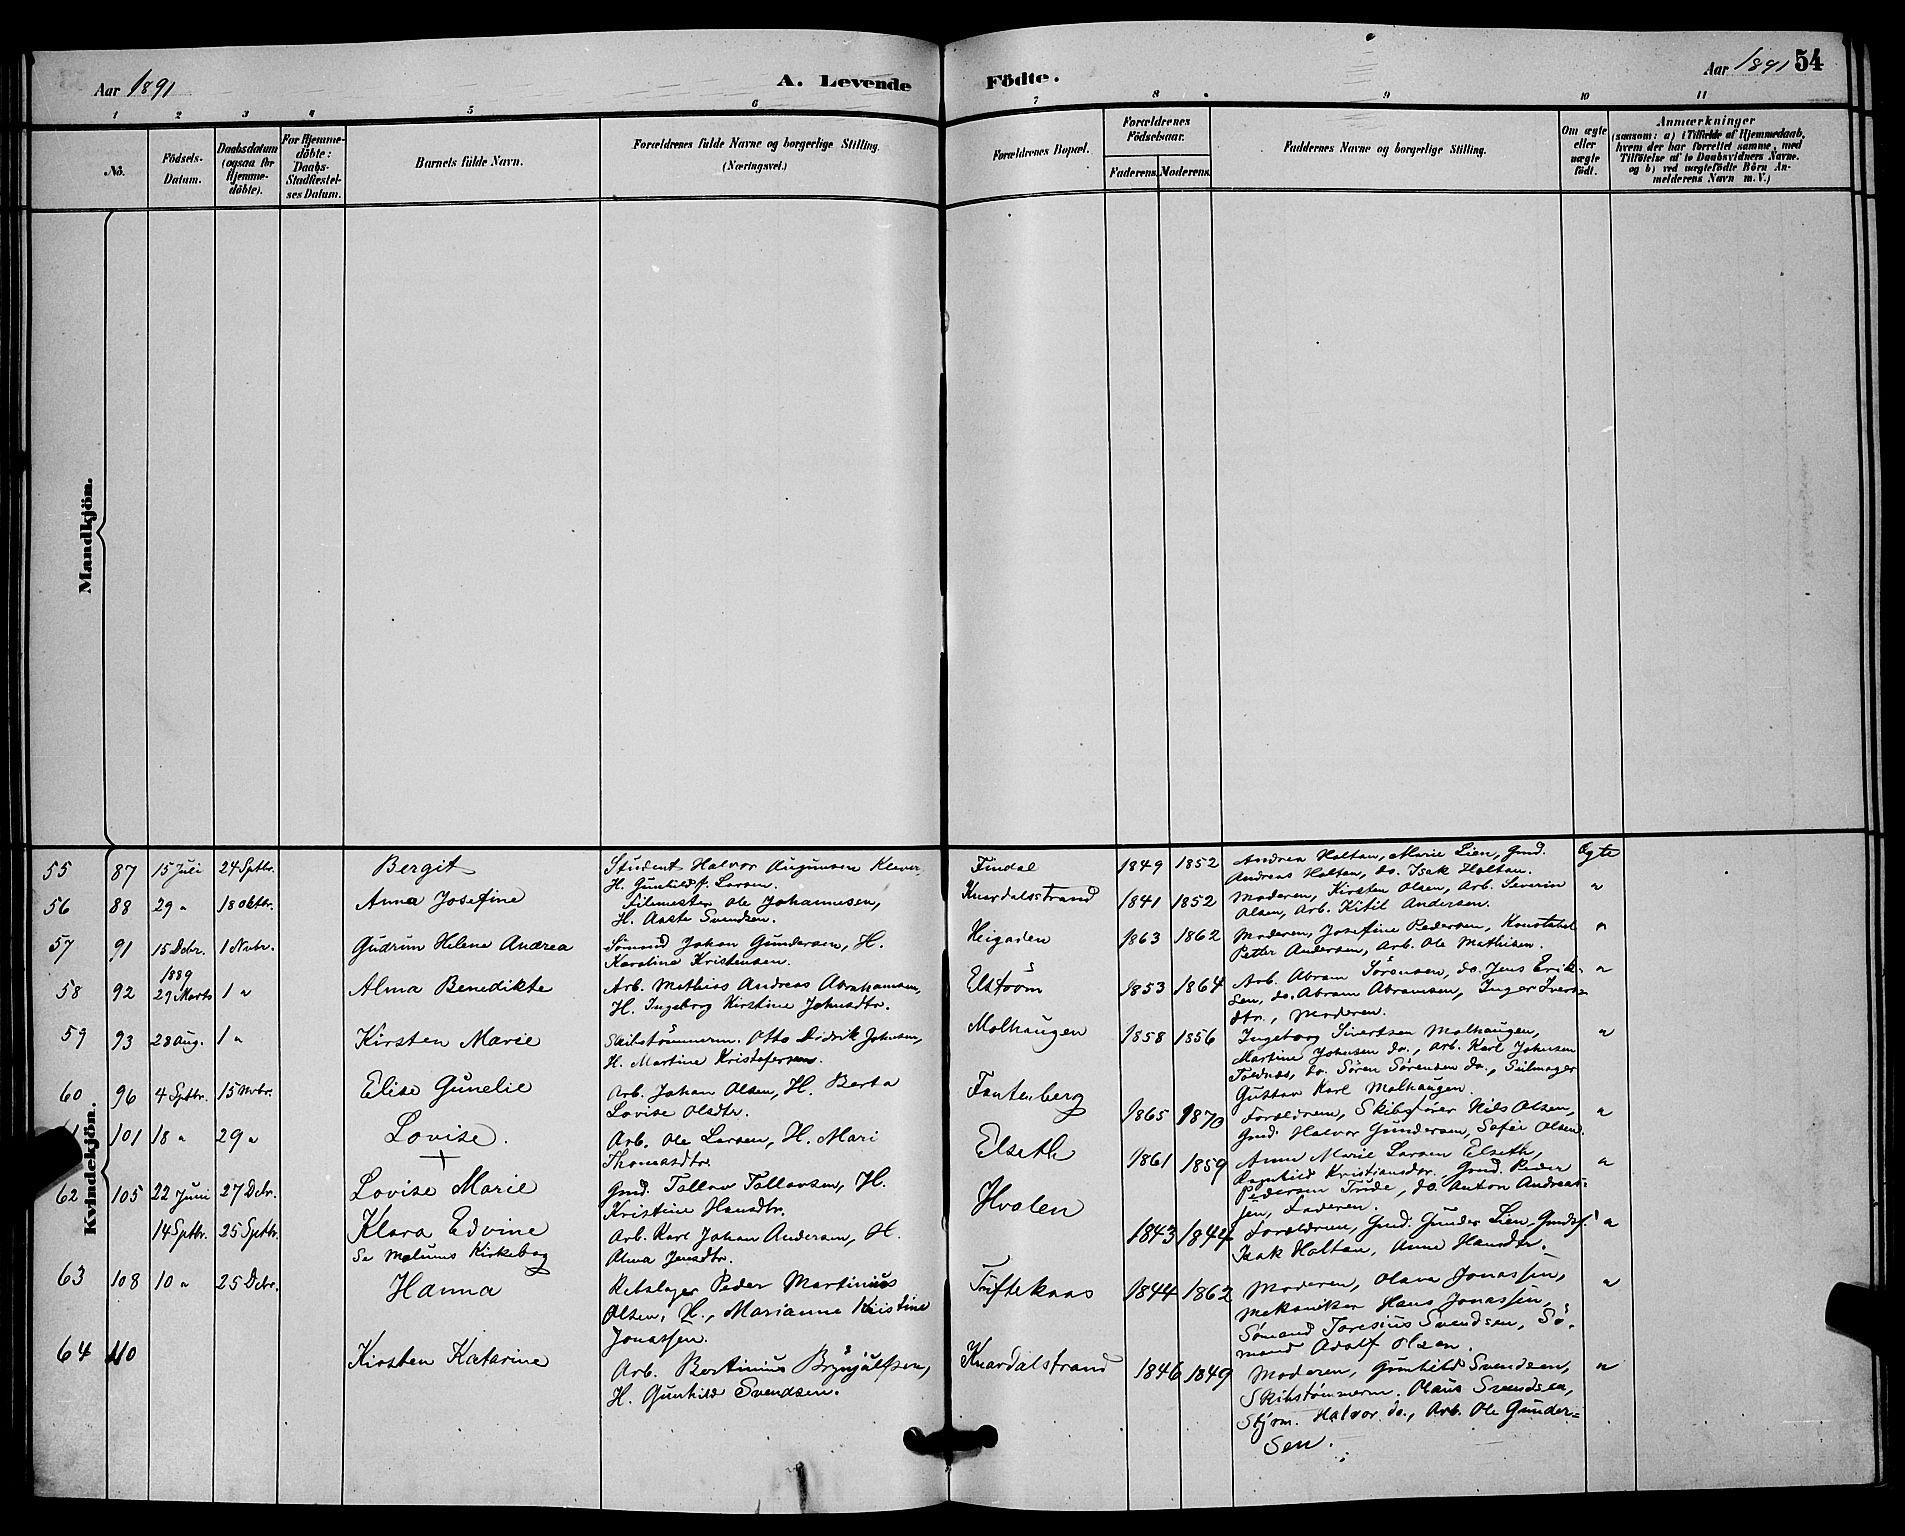 Aar 1891
A. Levende Födte.
Aar 1891 54
1 2 3 4 5 6 7 8 9 10 11
No.
Födsels-Datum.
Daabsdatum (ogsaa for Hjemme-döbte).
For Hjemme-döbte: Daabs-Stadfæstel-ses Datum.
Barnets fulde Navn.
Forældrenes fulde Navne og borgerlige Stilling.
(Næringsvei.)
Forældrenes Bopæl.
Forældrenes Födselsaar.
Faderens. Moderens.
Faddernes Navne og borgerlige Stilling.
Om ægte eller uægte födt.
Anmærkninger
(saasom: a) i Tilfælde af Hjemmedaab,
hvem der har forrettet samme, med
Tilföielse af to Daabsvidners Navne.
og b) ved uægtefödte Börn An-
melderens Navn m. V.)
Mandkjön.
Kvindekjön.
55 87 15 Juli 24 Sptbr. Bergit
Student Halvor Augunsen Klever,
H. Gunhild f. Larsen.
Findal 1849 1852
Andrea Holtan, Marie Lien, Gmd.
Andreas Holten, do. Isak Holtan.
Ægte
56 88 29 " 18 Oktbr. Anna Josefine
Filemester Ole Johannesen,
H. Aaste Svendsen.
Knardalsstrand 1841 1852
Moderen, Kirsten Olsen, Arb. Severin
Olsen, Arb. Kitil Andersen.
"
57 91 15 Dcbr. 1889 1 Nvbr. Gudrun Helene Andrea
Sømand Johan Gundersen, H.
Karoline Kristensen.
Heigaden 1863 1862
Moderen, Josefine Pedersen, Konstabel
Petter Andersen, Arb. Ole Mathisen.
"
58 92 29 Marts 1 " Alma Benedikte
Arb. Mathias Andreas Abrahamsen,
H. Ingeborg Kirstine Johnsdtr.
Elstrøm 1853 1864
Arb. Abram Sørensen, do. Jens Erik-
sen, do. Abram Abramsen, Inger Ivers-
dtr., Moderen.
"
59 93 28 Aug. 1 " Kirsten Marie
Skibstømmerm. Otto Didrik Johnsen,
H. Martine Kristofersen.
Molhaugen 1858 1856
Ingeborg Sivertsen Molhaugen,
Martine Johnsen do., Arb. Karl Johnsen
Tordnes, do. Søren Sørensen do., Seilmager
Gustav Karl Molhaugen.
"
60 96 4 Sptbr. 15 Nvbr. Elise Gunelie
Arb. Johan Olsen, H. Berta
Lovise Olsdtr.
Fantenberg 1865 1870
Forældrene, Skibsfører Nils Olsen,
Gmd. Halvor Gundersen, Sofie Olsen.
"
61 101 18 " 29 " Lovise.
Arb. Ole Larsen, H. Mari
Thomasdtr.
Elseth 1861 1859
Anne Marie Larsen Elseth,
Ragnhild Kristiansdtr., Gmd. Peder
Pedersen Trude, do. Anton Andreas-
sen, Faderen.
"
+
62 105 22 Juni 27 Dcbr. Lovise Marie
Gmd. Tallov Tallovsen, H.
Kristine Hansdtr.
Hvolen 1843 1844
Forældrene, Gmd. Gunder Lien, Gmdsf.
Isak Holtan, Anne Hansdtr.
"
14 Sptbr. 25 Sptbr. Klara Edvine
Se Melums Kirkebog
Arb. Karl Johan Andersen, H.
Alma Jensdtr.
63 108 10 " 25 Dcbr. Hanna
Rebslager Peder Martinius
Olsen, H., Marianne Kristine
Jonassen.
Tuftekaas 1844 1862
Moderen, Olava Jonassen,
Mekaniker Hans Jonassen,
Sømand Toresius Svendsen, Sø-
mand Adolf Olsen.
"
64 110 Kirsten Katarine
Arb. Bertinius Brynjulfsen,
H. Gunhild Svendsen.
Knardalstrand 1846 1849
Moderen, Gunhild Svendsen,
Skibstømmerm. Olaus Svendsen,
Styrm. Halvor do., Arb. Ole Gunder-
sen.
"